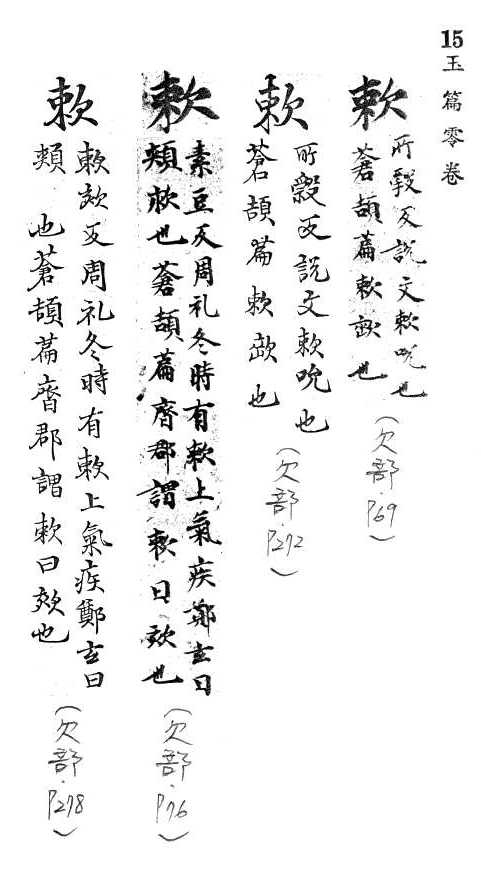 15 玉篇零卷
欶
所㝅反説文欶吮也
蒼頡篇欶㰵也
(欠部·P69)
欶
所㝅反説文欶吮也
蒼頡篇欶㰵也
(欠部·P272)
欶
素豆反周礼冬時有欶上氣疾鄭玄曰
頬欶也蒼頡篇齊郡謂欶曰欬也
(欠部·P76)
欶
欶欬反周礼冬時有欶上氣疾鄭玄曰
頬 也蒼頡篇齊郡謂欶曰欬也
(欠部·P278)